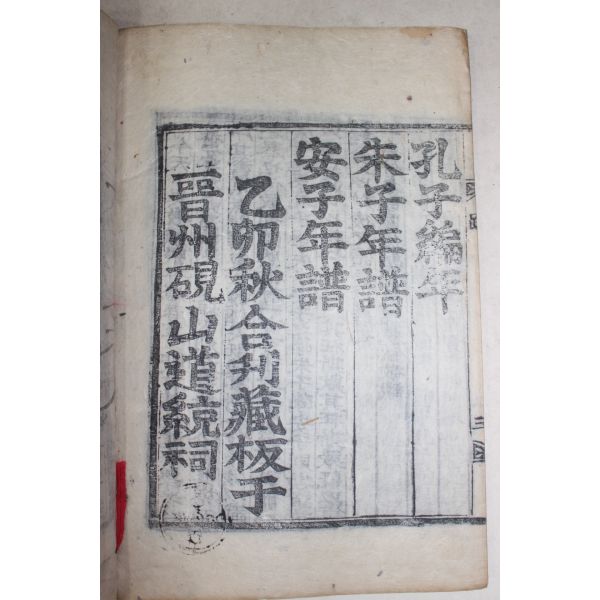 孔子編年
朱子年譜
安子年譜
乙卯秋合刋藏板于
晋州硯山道統祠
跋
三四